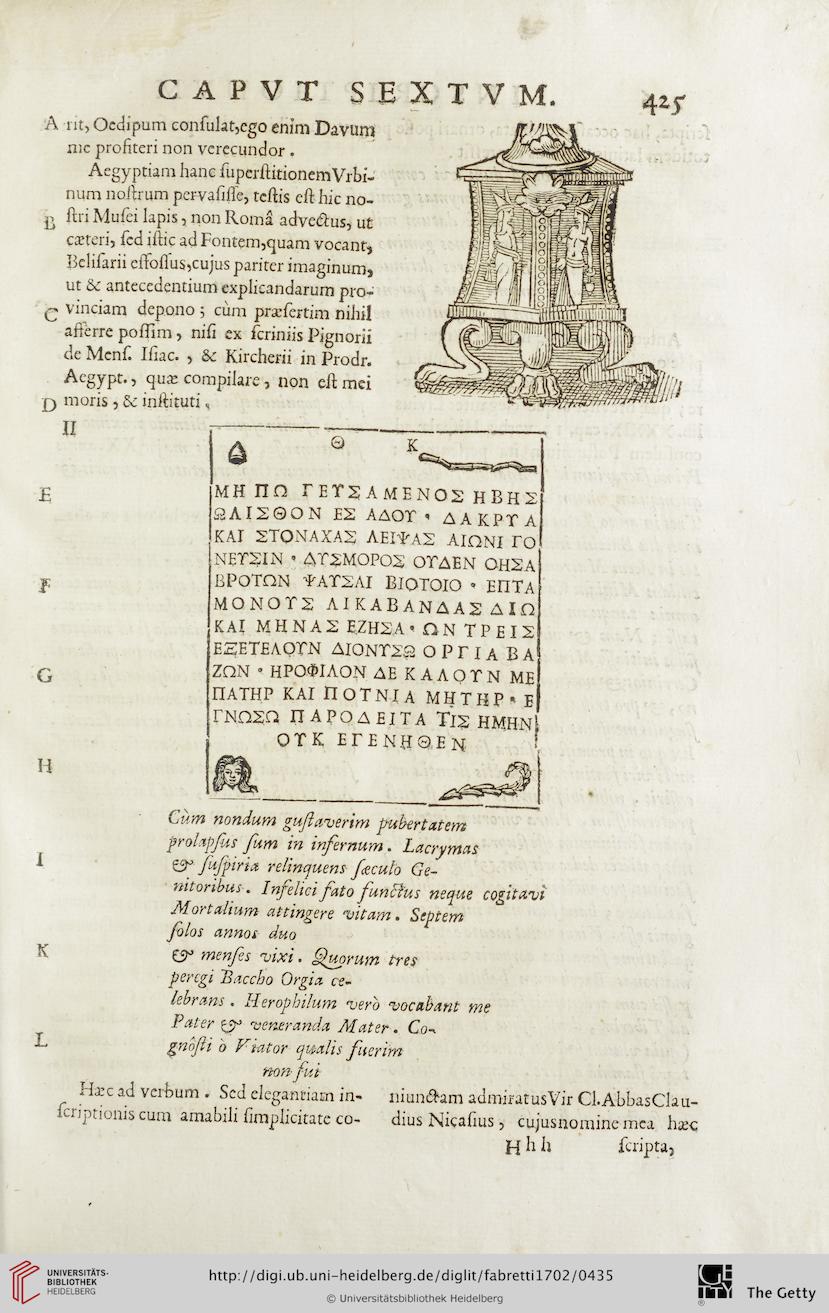 CAPVT SEXTVM. 425
A rit, Oedipum conſulat,ego enim Davum
me profiteri non verecundor .
Aegyptiam hanc ſuperſtitionemVrbi-
num noſtrum pervaſiſſe, teſtis eſt hic no-
B ſtri Muſei lapis , non Româ advectus, ut
cæteri, ſed iſtic ad Fontem,quam vocant,
Beliſarii effoſſus,cujus pariter imaginum,
ut & antecedentium explicandarum pro-
C vinciam depono ; cùm præſertim nihil
afferre poſſim , niſi ex ſcriniis Pignorii
de Menſ. Iſiac. , & Kircherii in Prodr.
Aegypt., quæ compilare , non eſt mei
D moris , & inſtituti .
II
Θ K
E ΜΗ ΠΩ ΓΕΥΣΑΜΕΝΟΣ ΗΒΗΣ
ΩΛΙΣΘΟΝ ΕΣ ΑΔΟΥ • ΔΑΚΡΥΑ
ΚΑΙ ΣΤΟΝΑΧΑΣ ΛΕΙΨΑΣ ΑΙΩΝΙ ΓΟ
ΝΕΥΣΙΝ • ΔΥΣΜΟΡΟΣ ΟΥΔΕΝ ΟΗΣΑ
F ΒΡΟΤΩΝ ΨΑΥΣΑΙ ΒΙΟΤΟΙΟ • ΕΠΤΑ
ΜΟΝΟΥΣ ΛΙΚΑΒΑΝΔΑΣ ΔΙΩ
ΚΑΙ ΜΗΝΑΣ ΕΖΗΣΑ • ΩΝ ΤΡΕΙΣ
ΕΞΕΤΕΛΟΥΝ ΔΙΟΝΥΣΩ ΟΡΓΙΑ ΒΑ
G ΖΩΝ • ΗΡΟΦΙΛΟΝ ΔΕ ΚΑΛΟΥΝ ΜΕ
ΠΑΤΗΡ ΚΑΙ ΠΟΤΝΙΑ ΜΗΤΗΡ • Ε
ΓΝΩΣΩ ΠΑΡΟΔΕΙΤΑ ΤΙΣ ΗΜΗΝ
ΟΥΚ ΕΓΕΝΗΘΕΝ
H
Cùm nondum guſtaverim pubertatem
prolapſus ſum in infernum . Lacrymas
I & ſuſpiria relinquens ſæculo Ge-
nitoribus . Infelici fato functus neque cogitavi
Mortalium attingere vitam . Septem
ſolos annos duo
K & menſes vixi . Quorum tres
peregi Baccho Orgia ce-
lebrans . Herophilum verò vocabant me
Pater & veneranda Mater . Co-
L gnôſti ò Viator qualis fuerim
non fui
Hæc ad verbum . Sed elegantiam in-
ſcriptionis cum amabili ſimplicitate co-
niunctam admiratusVir Cl.AbbasClau-
dius Nicaſius , cujusnomine mea hæc
Hhh ſcripta,
UNIVERSITÄTS-
BIBLIOTHEK
HEIDELBERG
http://digi.ub.uni-heidelberg.de/diglit/fabretti1702/0435
© Universitätsbibliothek Heidelberg
GETTY
The Getty